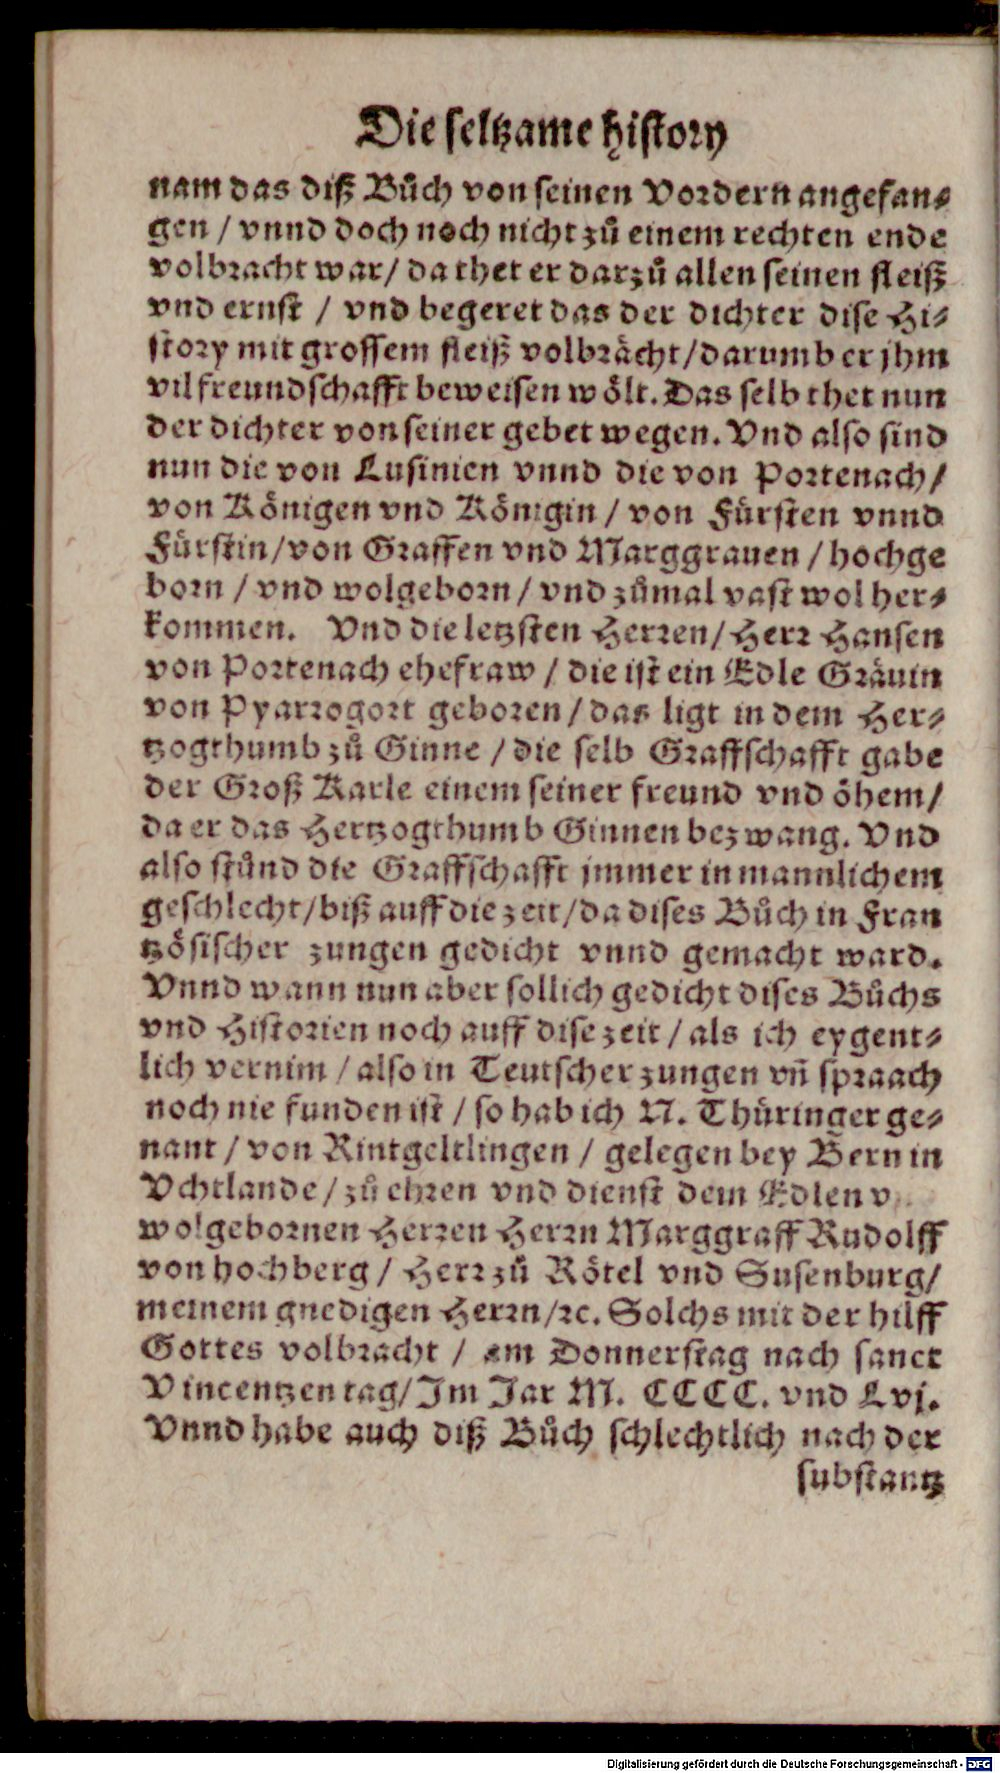 Die seltzame history
nam das diß Bůch von seinen Vordern angefan⸗
gen / vnnd doch noch nicht zů einem rechten ende
volbracht war/ da thet er darzů allen seinen fleiß
vnd ernst / vnd begeret das der dichter dise Hi⸗
story mit grossem fleiß volbrächt/darumb er jhm
vil freundschafft beweisen wölt. Das selb thet nun
der dichter von seiner gebet wegen. Vnd also sind
nun die von Lusinien vnnd die von Portenach/
von Königen vnd Königin / von Fürsten vnnd
Fürstin/von Graffen vnd Marggrauen / hochge
born / vnd wolgeborn / vnd zůmal vast wol her⸗
kommen. Vnd die letzsten Herren/ Herr Hansen
von Portenach ehefraw / die ist ein Edle Grävin
von Pyarrogort geboren / das ligt in dem Her⸗
tzogthumb zů Ginne / die selb Graffschafft gabe
der Groß Karle einem seiner freund vnd öhem/
da er das Hertzogthumb Ginnen bezwang. Vnd
also stůnd die Graffschafft jmmer in mannlichem
geschlecht/biß auff die zeit/da dises Bůch in Fran
tzösischer zungen gedicht vnnd gemacht ward.
Vnnd wann nun aber sollich gedicht dises Bůchs
vnd Historien noch auff dise zeit / als ich eygent⸗
lich vernim / also in Teutscher zungen vñ spraach
noch nie funden ist / so hab ich N. Thüringer ge⸗
nant / von Rintgeltlingen / gelegen bey Bern in
Vchtlande / zů ehren vnd dienst dem Edlen
wolgebornen Herren Herrn Marggraff Rudolff
von hochberg / Herr zů Rötel vnd Susenburg/
meinem gnedigen Herrn/ꝛc. Solchs mit der hilff
Gottes volbracht / am Donnerstag nach sanct
Vincentzen tag/ Im Jar M. CCCC. vnd Lvj.
Vnnd habe auch diß Bůch schlechtlich nach der
substantz
Digitalisierung gefördert durch die Deutsche Forschungsgemeinschaft - DFG